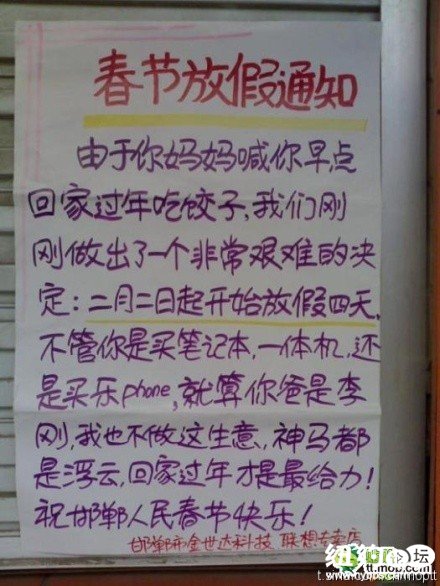 春节放假通知
由于你妈妈喊你早点
回家过年吃饺子,我们刚
刚做出了一个非常艰难的决
定:二月二日起开始放假四天,
不管你是买笔记本,一体机,还
是买乐phone,就算你爸是李
刚,我也不做这生意,神马都
是浮云,回家过年才是最给力!
祝邯郸人民春节快乐!
邯郸市金世达科技 联想专卖店
tt.mop.com